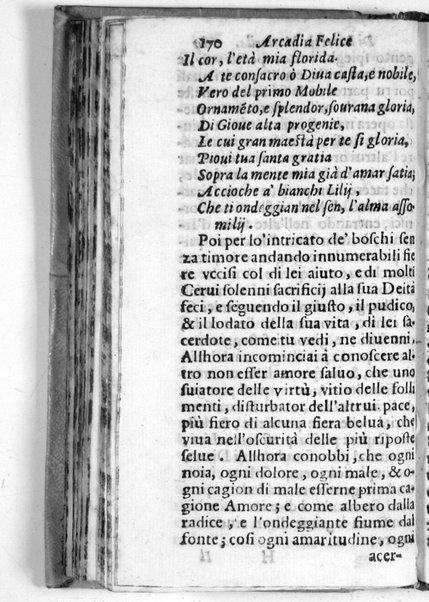 170 Arcadia Felice
Il cor, l'età mia florida.
A te consacro ò Diua casta, e nobile,
Vero del primo Mobile
Ornamẽto, e splendor, sourana gloria,
Di Gioue alta progenie,
Le cui gran maestà per te si gloria,
Pioui tua santa gratia
Sopra la mente mia già d'amar satia;
Accioche a' bianchi Lilij,
Che ti ondeggian nel sen, l'alma asso-
milij.
Poi per lo'intricato de' boschi sen
za timore andando innumerabili fie
re vccisi col di lei aiuto, e di molti
Cerui solenni sacrificij alla sua Deità
feci, e seguendo il giusto, il pudico,
& il lodato della sua vita, di lei sa-
cerdote, come tu vedi, ne diuenni.
Allhora incominciai à conoscere al-
tro non esser amore saluo, che uno
suiatore delle virtù, vitio delle folli
menti, disturbator dell'altrui pace,
più fiero di alcuna fiera belua, che
viua nell'oscurità delle più riposte
selue. Allhora conobbi, che ogni
noia, ogni dolore, ogni male, & o-
gni cagion di male esserne prima ca-
gione Amore; e come albero dalla
radice, e l'ondeggiante fiume dal
fonte; così ogni amaritudine, ogni
acer-